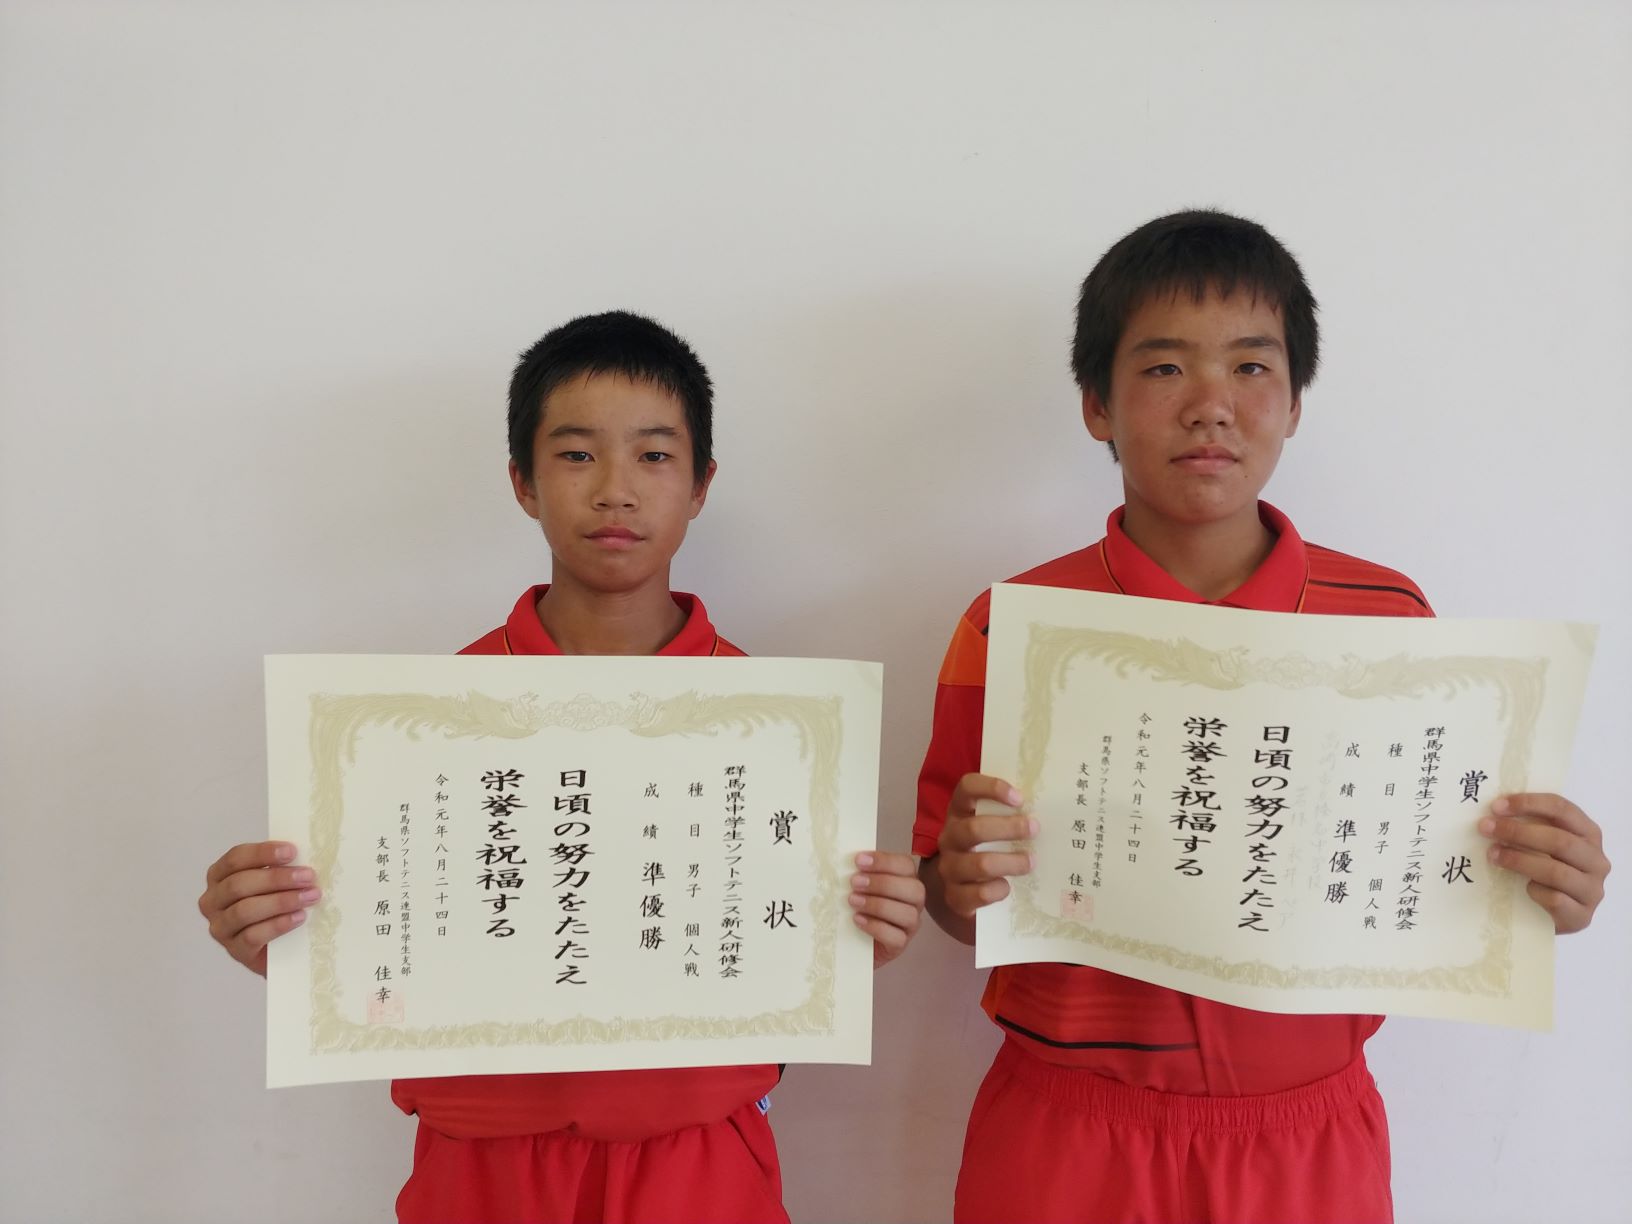 賞状
群馬県中学生ソフトテニス新人研修会
種目 男子 個人戦
成績 準優勝
日頃の努力をたたえ
栄誉を祝福する
令和元年八月二十四日
群馬県ソフトテニス連盟中学生支部
支部長 原田 佳幸
賞状
群馬県中学生ソフトテニス新人研修会
種目 男子 個人戦
成績 準優勝
ペア
日頃の努力をたたえ
栄誉を祝福する
令和元年八月二十四日
群馬県ソフトテニス連盟中学生支部
支部長 原田 佳幸